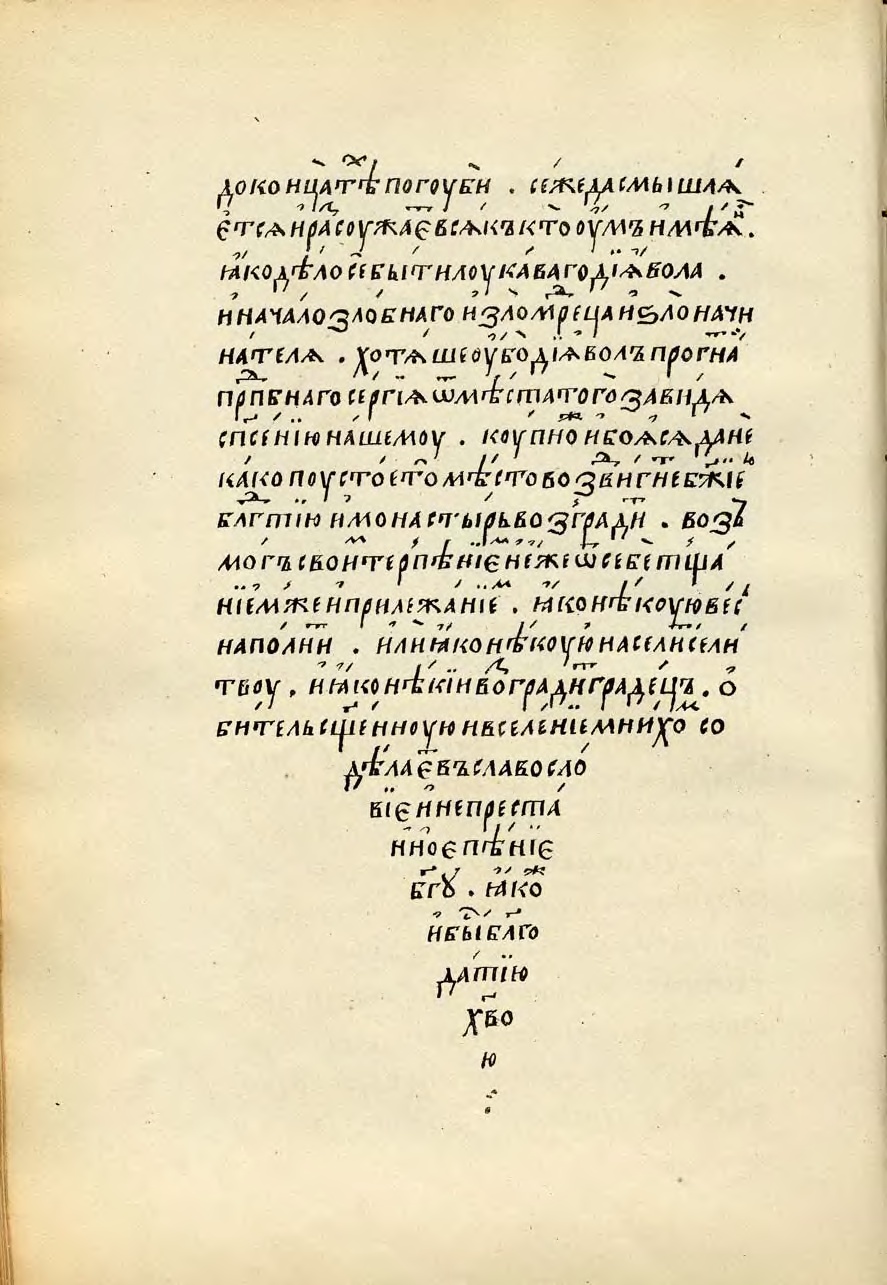 до конца тѣⷯ погоуби . се же да смышлѧ
єтсѧ и расоужⷣаєⷮ всѧкъ кто оумъ имѣѧⷤ .
ꙗко дѣло се быти лоукаваго діѧвола .
и началоꙁлобнаго и ꙁломⷣреца и ѕлоначи
нателѧ . хотѧше оубо діѧволъ прогнаⷮ
прпⷣбнаго сергіѧ ѿ мѣста того ꙁавидѧ
спсенїю нашемоу . коупноⷤ и боѧсѧ да не
како поустое то мѣсто воꙁдвигнеⷮ бжїеⷨ
блгⷣтїю и монастырь воꙁградиⷮ . воꙁъ
могъ своиⷨ терпѣнїєⷨ и еже ѿ себе тща
нїемⷤже и прилежанїеⷨ . ꙗко нѣкоую весⷭ
наполниⷮ . или ꙗко нѣкоую населиⷮ сели
твоу , и ꙗко нѣкїи воградиⷮ градецъ . о
битель сщенноую и вселенїе мнихоⷨ со
дѣлаєⷮ въ славосло
вїє и непреста
нноє пѣнїє
бгꙋ . ꙗкоⷤ
и бы блго
датїю
хво
ю